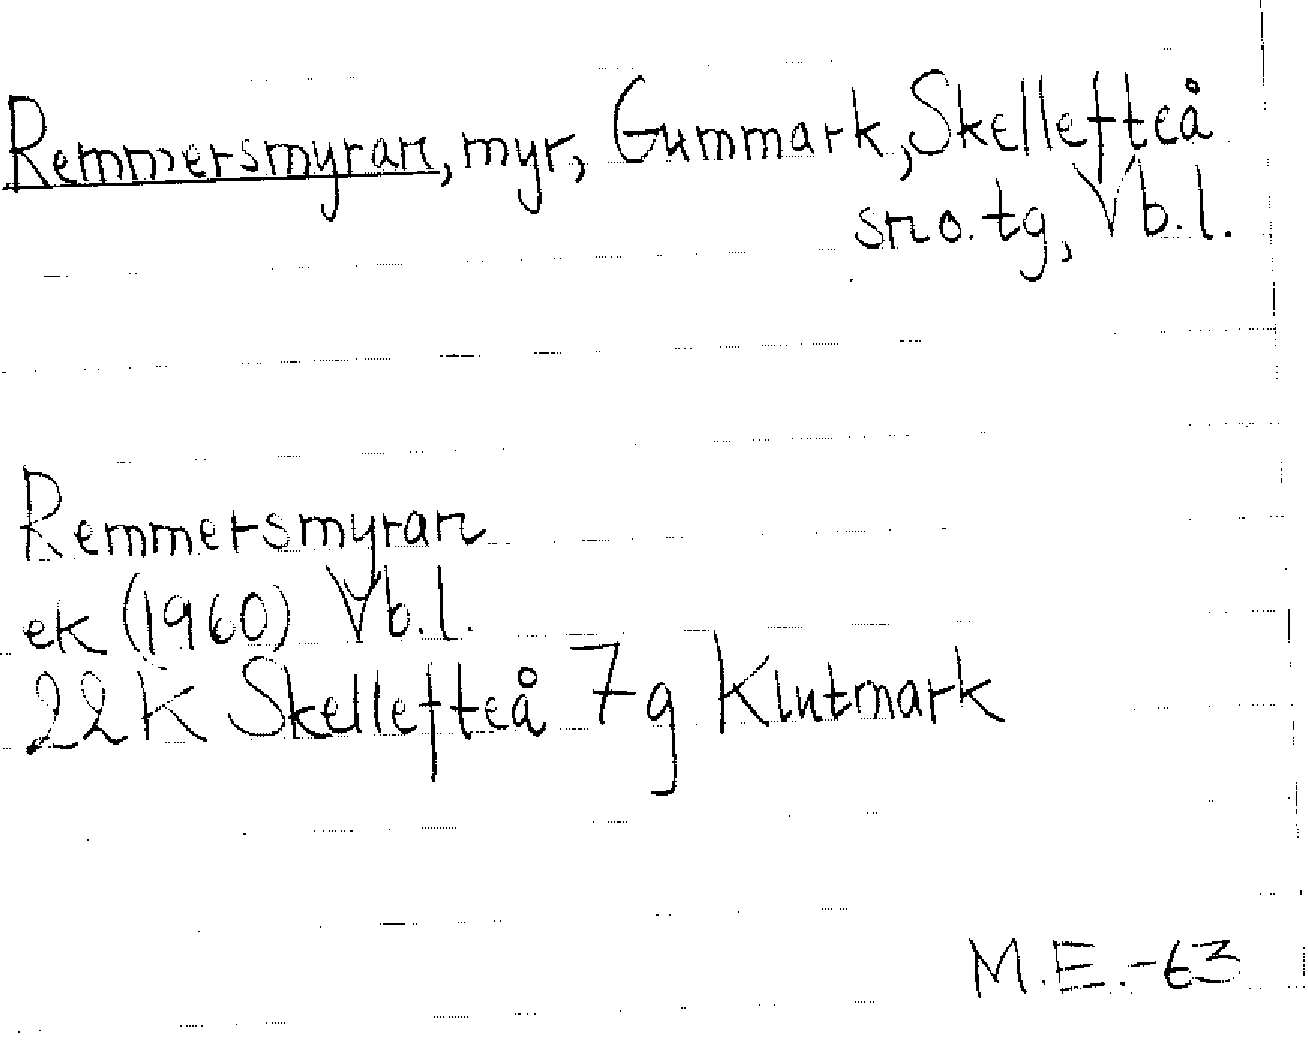 Remmersmyran, myr, Gummark, Skellefteå
sn o. tg, Vb.l.
Remmersmyran
ek (1960) Vb.l.
22K Skellefteå 7g Klutmark
M.E.-63